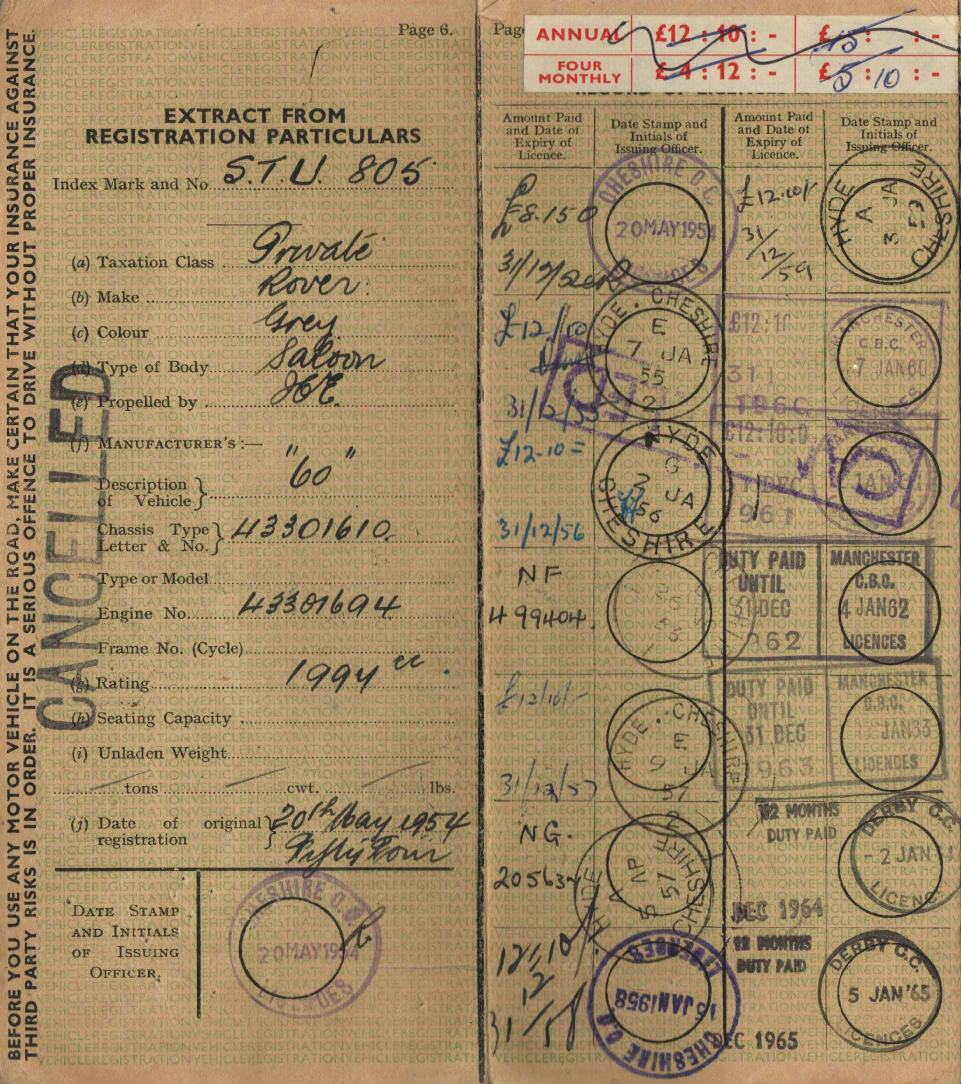 BEFORE YOU USE ANY MOTOR VEHICLE ON THE ROAD, MAKE CERTAIN THAT YOUR INSURANCE AGAINST
THIRD PARTY RISKS IS IN ORDER. IT IS A SERIOUS OFFENCE TO DRIVE WITHOUT PROPER INSURANCE.
Page 6.
EXTRACT FROM
REGISTRATION PARTICULARS
Index Mark and No S.T.U. 805
(a) Taxation Class Private
(b) Make Rover
(c) Colour Grey
(d) Type of Body Saloon
(e) Propelled by ICE
(f) MANUFACTURER'S :—
Description of Vehicle } "60"
Chassis Type Letter & No. } 43301610
Type or Model
Engine No. 43301694
Frame No. (Cycle)
(g) Rating 1994 cc
(h) Seating Capacity
(i) Unladen Weight
tons cwt. lbs.
(j) Date of original registration } 20th May 1954
Fifty Four
DATE STAMP
AND INITIALS
OF ISSUING
OFFICER.
CHESHIRE C.C.
20 MAY 1954
LICENCES
CANCELLED
Pag
ANNUAL £12 : 10 : - £15 : : -
FOUR MONTHLY £4 : 12 : - £5 : 10 : -
Amount Paid and Date of Expiry of Licence.
Date Stamp and Initials of Issuing Officer.
Amount Paid and Date of Expiry of Licence.
Date Stamp and Initials of Issuing Officer.
£8.15.0
CHESHIRE C.C.
20 MAY 1954
£12.10/-
31/12/59
HYDE CHESHIRE
A
3 JA
59
£12/10
HYDE . CHESHIRE
E
7 JA
55
£12:10
1960
MANCHESTER
C.B.C.
7 JAN 60
£12-10=
31/12/56
HYDE
G
2 JA
56
CHESHIRE
£12:10:0
DEC
1961
JAN
NF
499404.
DUTY PAID
UNTIL
31 DEC
1962
MANCHESTER
C.B.C.
4 JAN 62
LICENCES
£12/10/-
31/12/57
HYDE . CHESHIRE
E
9 JA
57
DUTY PAID
UNTIL
31 DEC
1963
MANCHESTER
C.B.C.
JAN 63
LICENCES
NG.
HYDE
A
5 AP
57
CHESHIRE
12 MONTHS
DUTY PAID
DEC 1964
DERBY C.C.
- 2 JAN
LICENCE
12/10
31/12/58
CHESHIRE C.C.
15 JAN 1958
LICENCES
12 MONTHS
DUTY PAID
DEC 1965
DERBY C.C.
5 JAN '65
LICENCES